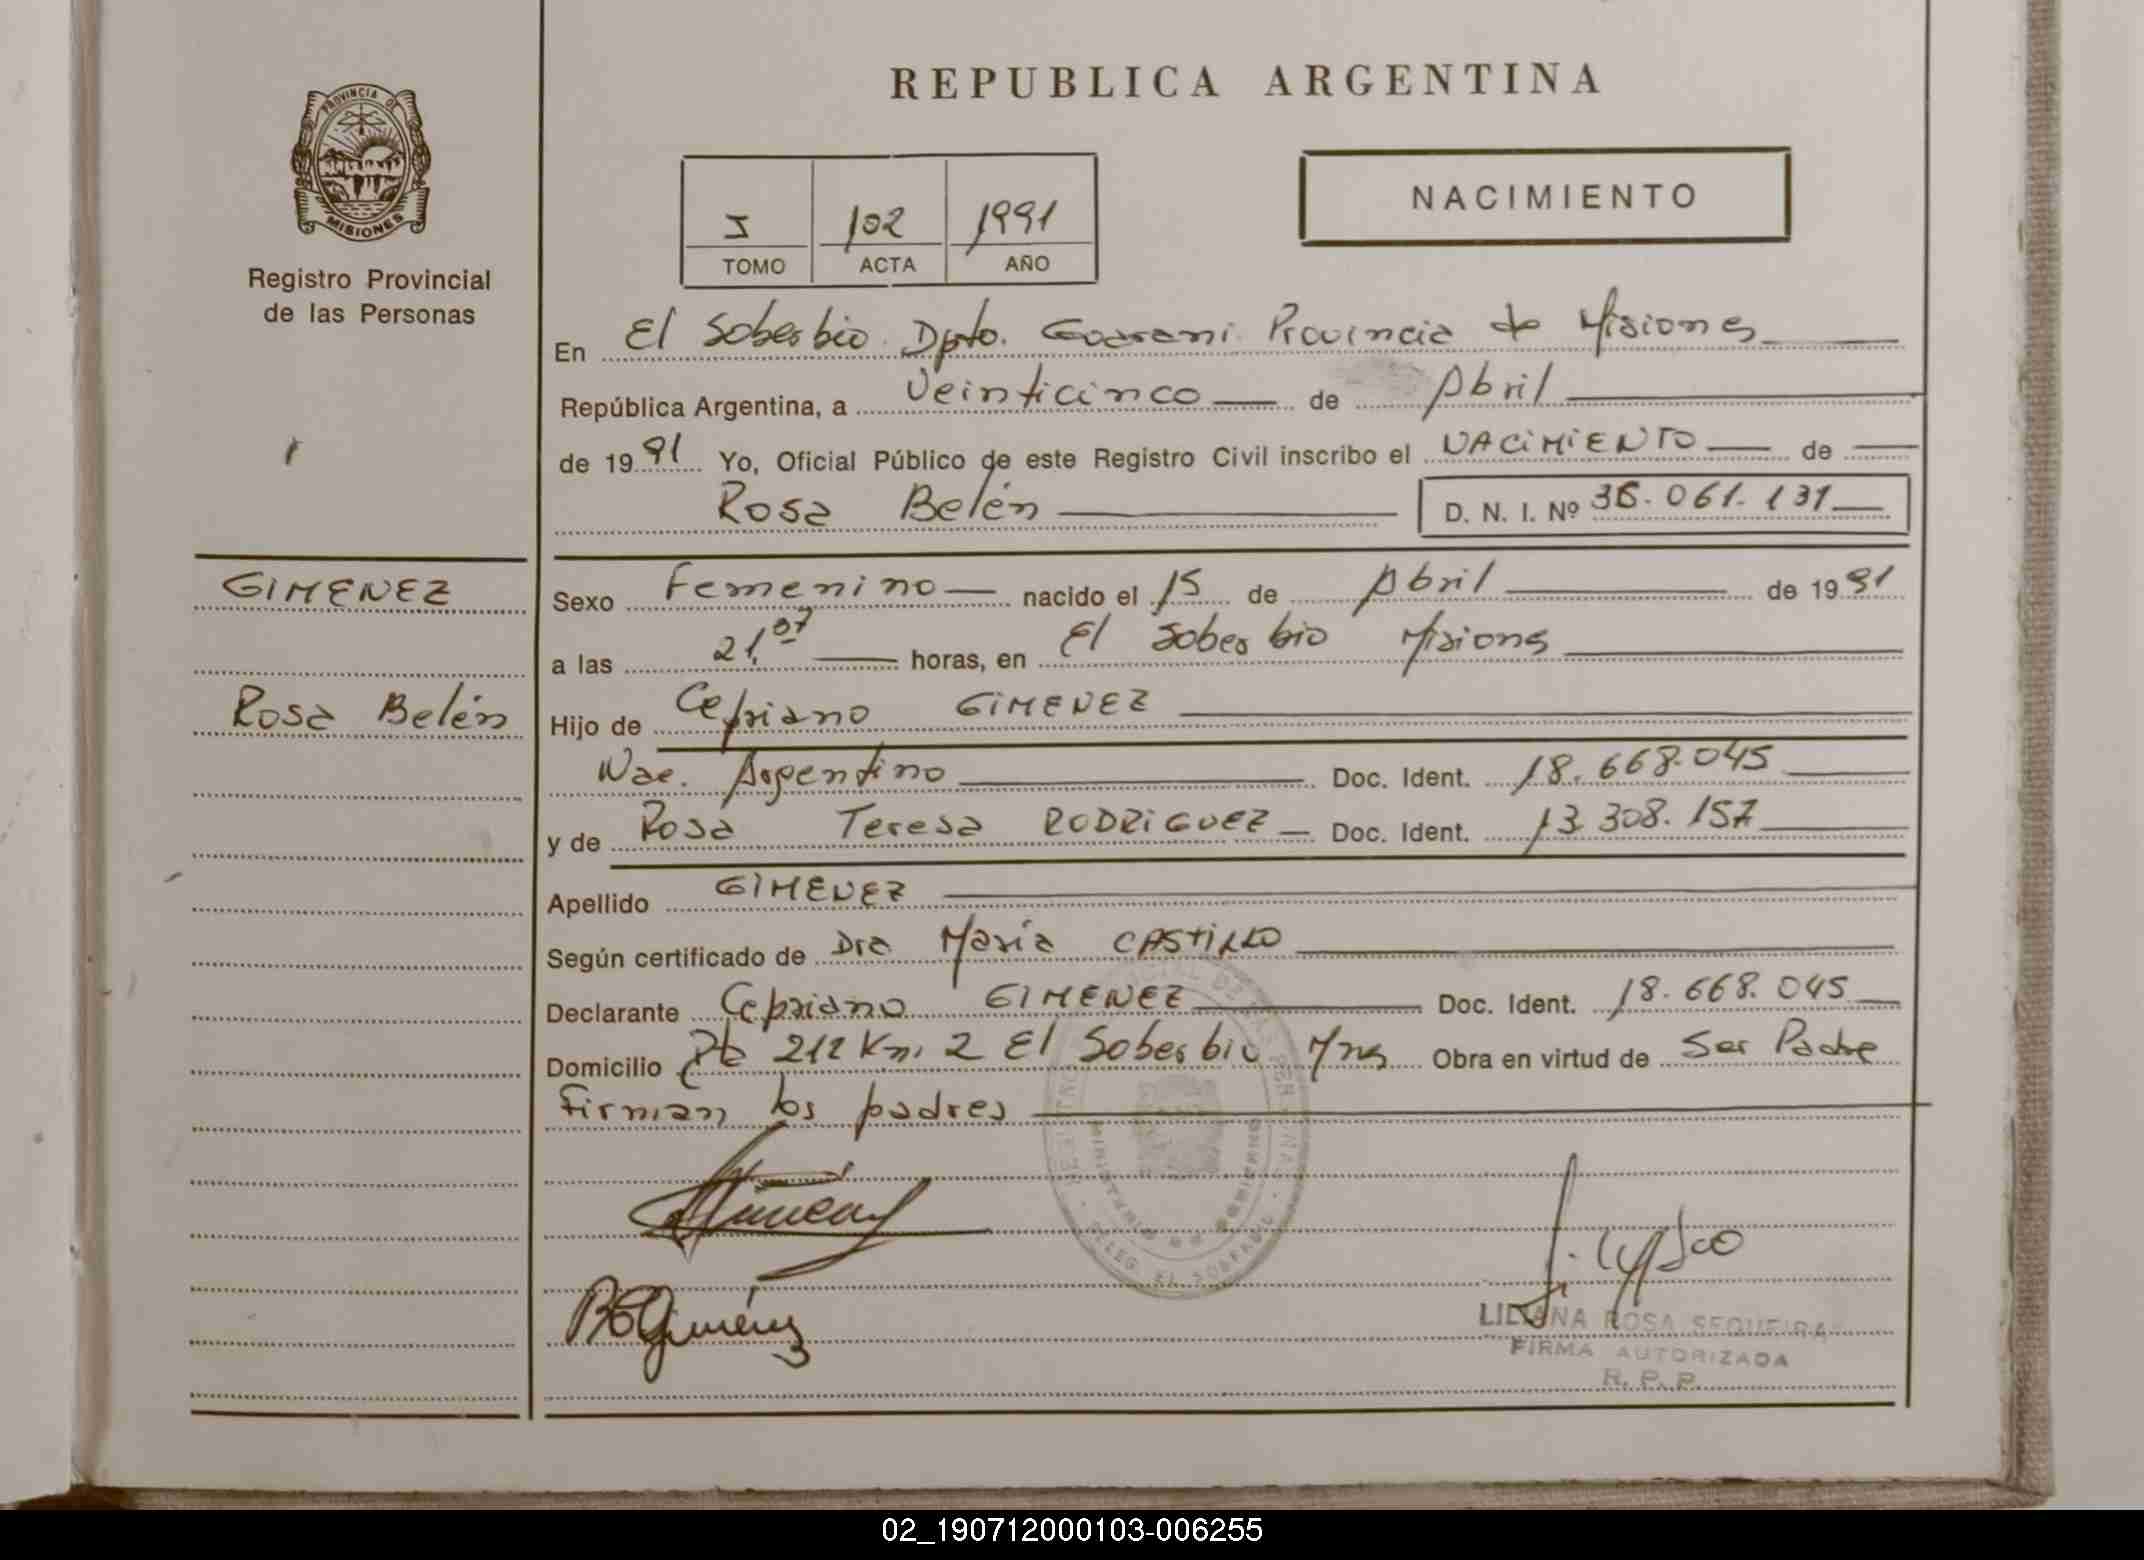 PROVINCIA DE
MISIONES
Registro Provincial
de las Personas
REPUBLICA ARGENTINA
I 102 1991
TOMO ACTA AÑO
NACIMIENTO
En El Soberbio Dpto. Guarani Provincia de Misiones
República Argentina, a Veinticinco de Abril
de 1991 Yo, Oficial Público de este Registro Civil inscribo el NACIMIENTO de
Rosa Belén D. N. I. Nº 36.061.131
GIMENEZ
Rosa Belén
Sexo Femenino nacido el 15 de Abril de 1991
a las 21,07 horas, en El Soberbio Misiones
Hijo de Cepriano GIMENEZ
Nac. Argentino Doc. Ident. 18.668.045
y de Rosa Teresa RODRIGUEZ Doc. Ident. 13.308.157
Apellido GIMENEZ
Según certificado de Dra María CASTILLO
Declarante Cepriano GIMENEZ Doc. Ident. 18.668.045
Domicilio Rta 212 Km, 2 El Soberbio Mns Obra en virtud de Ser Padre
Firman los padres
LILIANA ROSA SEQUEIRA
FIRMA AUTORIZADA
R. P. P.
02_190712000103-006255